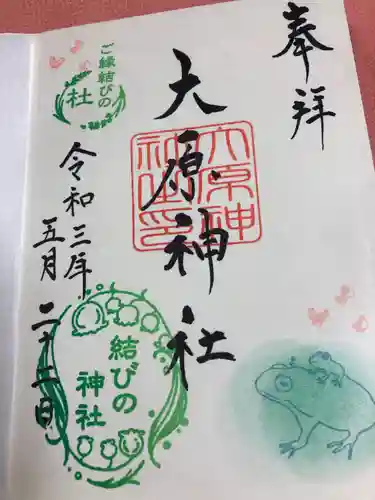 奉拝
大原神社
大原神
社之印
ご縁結びの
社
令和三年
五月二十二日
結びの
神社